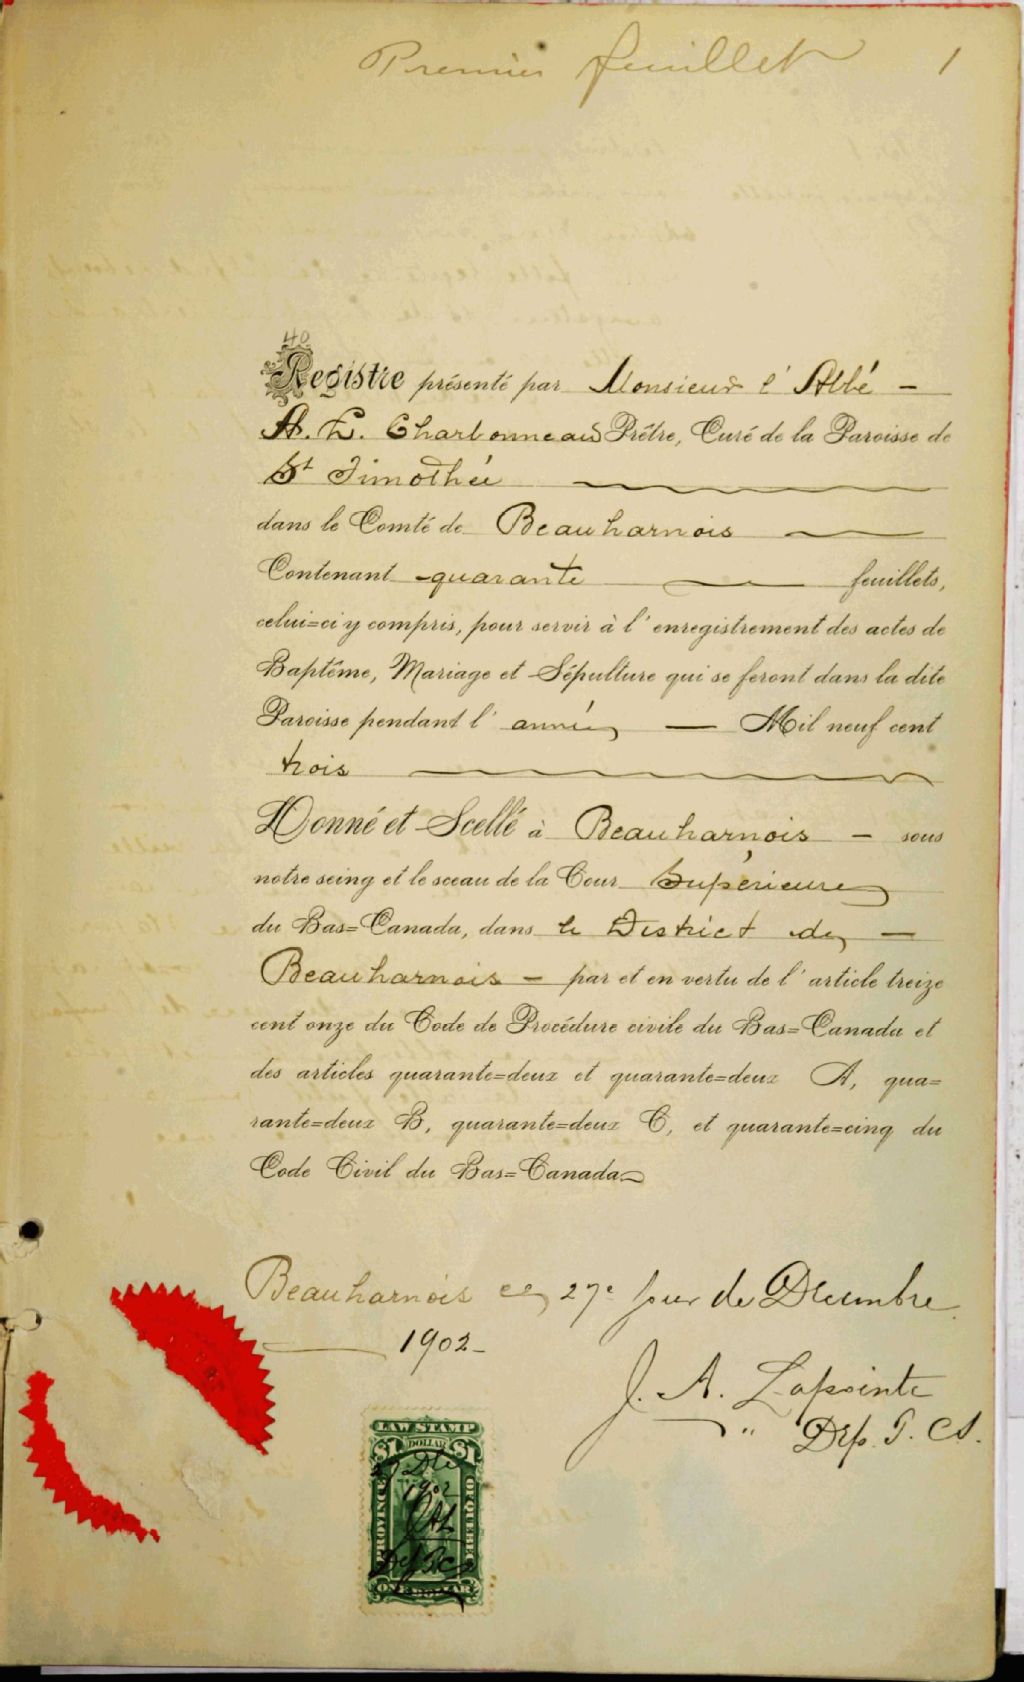 Premier feuillet 1
40
Registre présenté par Monsieur l'Abbé -
A. L. Charbonneau Prêtre, Curé de la Paroisse de
St Timothée
dans le Comté de Beauharnois
Contenant quarante feuillets,
celui=ci y compris, pour servir à l'enregistrement des actes de
Baptême, Mariage et Sépulture qui se feront dans la dite
Paroisse pendant l'année — Mil neuf cent
trois
Donné et Scellé à Beauharnois - sous
notre seing et le sceau de la Cour Supérieure
du Bas=Canada, dans le District de —
Beauharnois - par et en vertu de l'article treize
cent onze du Code de Procédure civile du Bas=Canada et
des articles quarante=deux et quarante=deux A, qua=
rante=deux B, quarante=deux C, et quarante=cinq du
Code Civil du Bas=Canada
Beauharnois ce 27e jour de Décembre
1902-
J. A. Lapointe
" Dep. P. C. S.
LAW STAMP
$1 DOLLAR $1
27 Dec
1902
JAL
Dep P.C.S
PROVINCE
OF QUEBEC
ONE DOLLAR